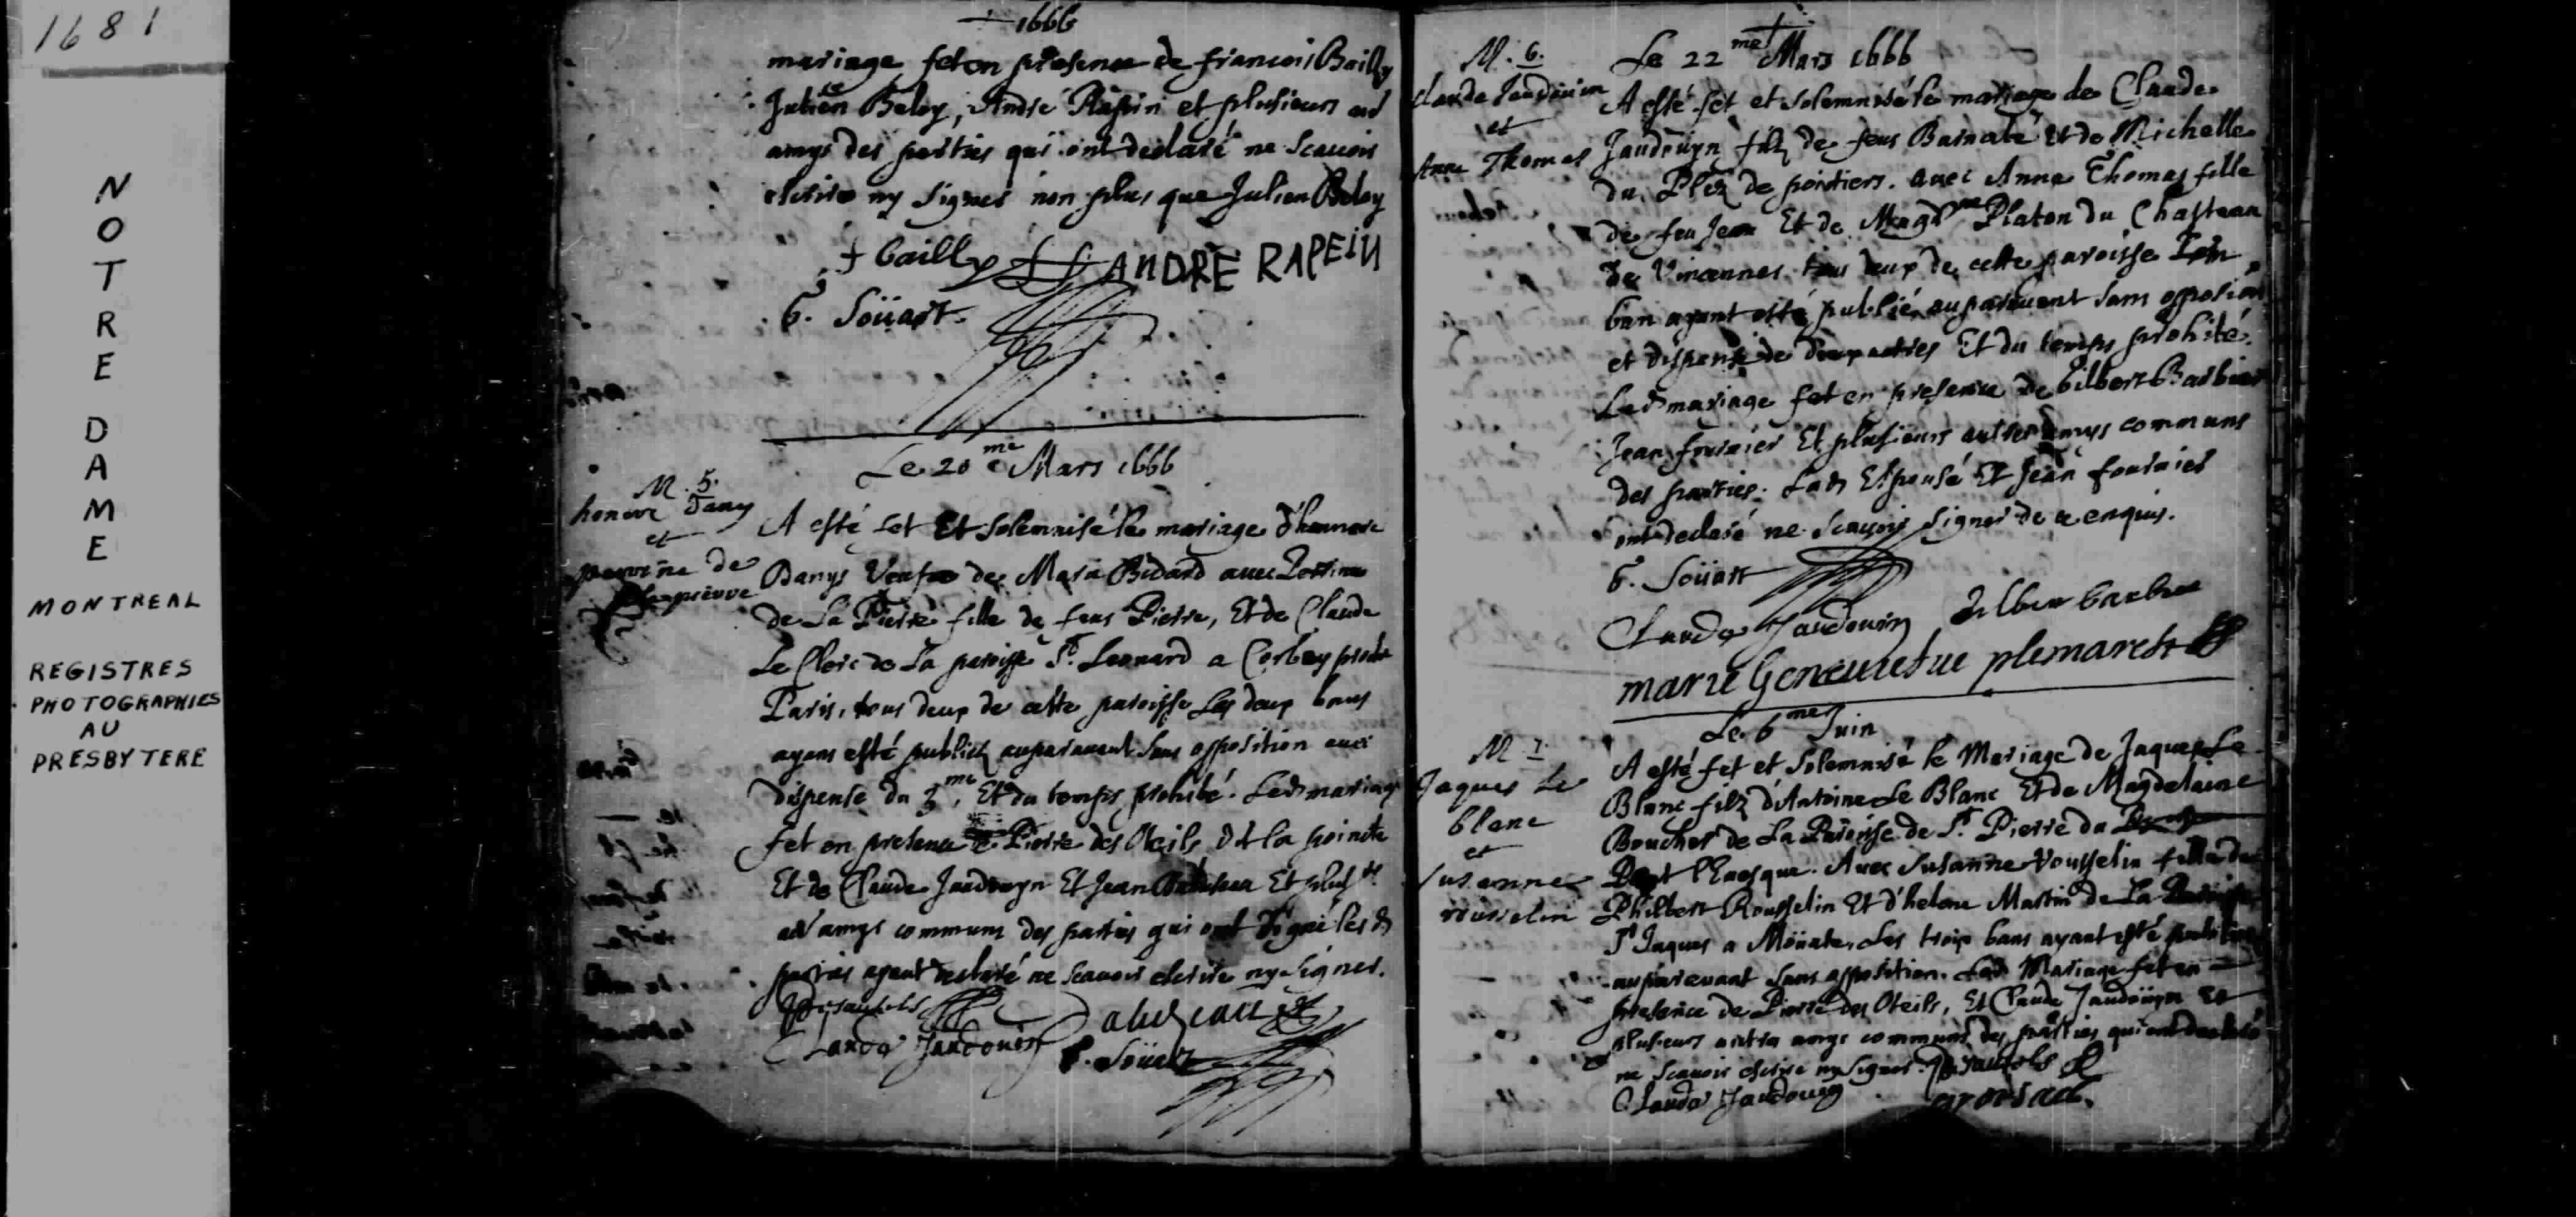 1681
NOTRE
DAME
MONTREAL
REGISTRES
PHOTOGRAPHIES
AU
PRESBYTERE
1666
mariage fet en presence de francois Bailly
Julien Beloy, André Rapin et plusieurs
amys des parties qui ont declaré ne scavoir
escrire ny signer non plus que Julien Beloy
f bailly ANDRE RAPEIN
G. Soüart
Le 20me Mars 1666
M. 5.
honoré Dany
et
perrine de
lapierre
A esté fet Et solemnisé le mariage d'honnoré
Danys Veufve de Marie Bidard avec Perrine
de La Pierre fille de feus Pierre, Et de Claude
Le Clerc de la paroisse St. Leonard a Corbey proche
Paris, tous deux de cette paroisse Les deux bans
ayans esté publiez auparavant sans opposition avec
dispense du 3me, Et du temps prohibé. Led mariage
fet en presence de Pierre des Oteils dit la pointe
Et de Claude Jaudouyn Et Jean Et plusrs
amys communs des parties qui ont signé les d
parties ayant declaré ne scavoir escrire ny signer.
Desautels
Claude Jaudouin G. Soüart
M. 6.
Claude Jaudouin
et
Anne Thomas
Le 22me Mars 1666
A esté fet et solemnisé le mariage de Claude
Jaudouyn filz de feus Barnabé Et de Michelle
du de poictiers. avec Anne Thomas fille
de feu Jean Et de Magdne Platon du Chasteau
de Vincennes tous deux de cette paroisse
ban ayant esté publié auparavant sans opposion
et dispense de deux autres Et du temps prohibé.
Led mariage fet en presence de Gilbert Barbier
Jean fournier Et plusieurs autres amys communs
des parties. Lad Espousé Et Jean fournier
ont declaré ne scavoir signer de ce enquis.
G. Soüart
Claude Jaudouin Gilber barbier
marie Geneuiefue plemarech
Le 6me Juin
M 7
Jaques Le
blanc
et
susanne
rousselin
A esté fet et solemnisé le Mariage de Jaques Le
Blanc filz d'Antoine Le Blanc Et de Magdelaine
Boucher de La Paroisse de St. Pierre du
Pont l'Evesque. Avec Susanne Rousselin fille de
Philbert Rousselin Et d'helene Martin de La Paroisse
St Jaques a Les trois bans ayant esté publiez
auparavant sans opposition. Led Mariage fet en
presence de Pierre des Oteils, Et Claude Jaudouyn Et
plusieurs autres amys communs des parties qui ont declaré
ne scavoir escrire ny signer. Desautels
Claude Jaudouin